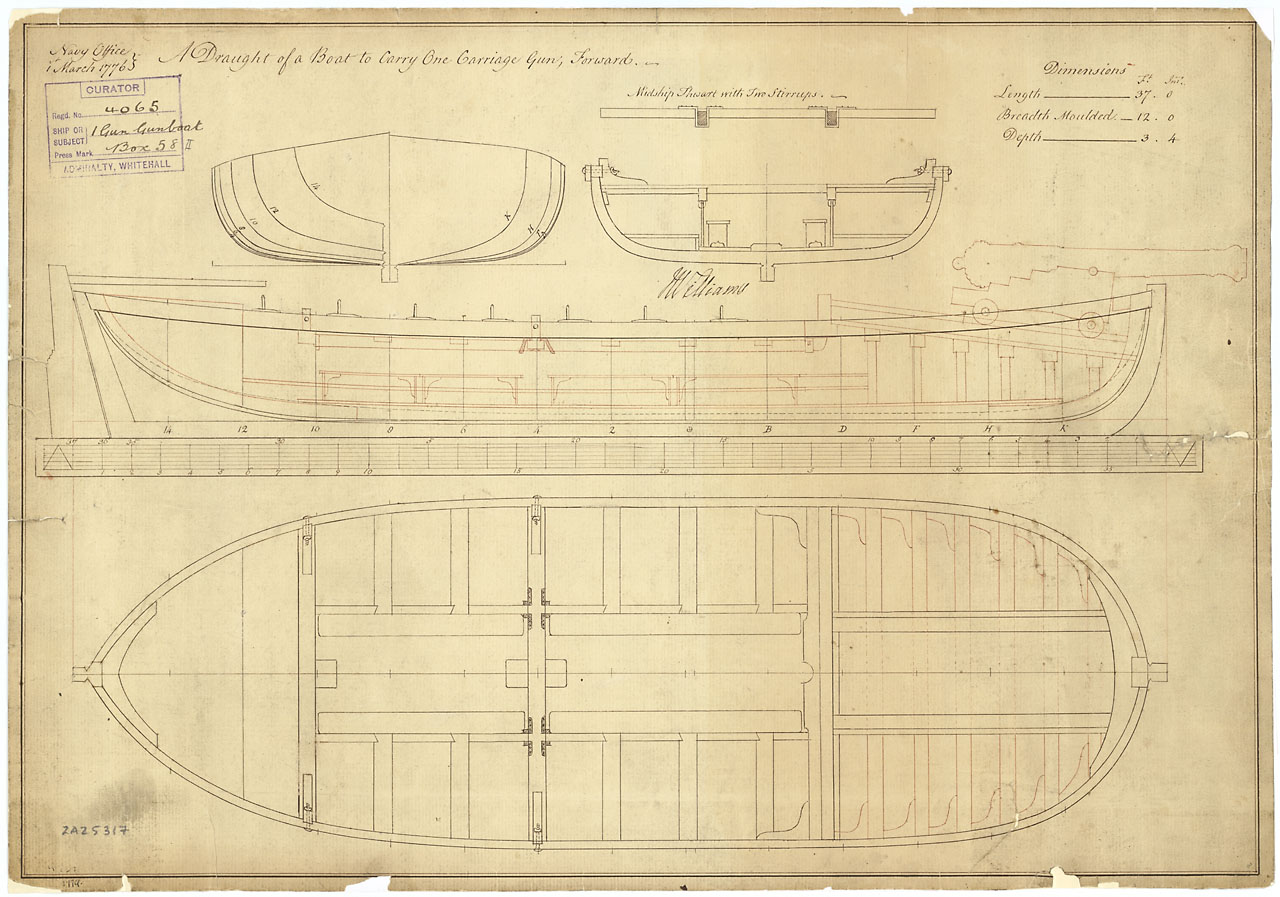 Navy Office
1 March 1776
A Draught of a Boat to Carry One Carriage Gun, Forward.
CURATOR
Regd. No. 4065
SHIP OR SUBJECT 1 Gun Gunboat
Press Mark Box 58 II
ADMIRALTY, WHITEHALL
Midship Thwart with Two Stirrups.
Dimensions
Ft. Ins.
Length 37. 0
Breadth Moulded. 12. 0
Depth 3. 4
14
12
10
8
K
H
F
J Williams
14 12 10 8 6 4 2 B D F H K
2A25317